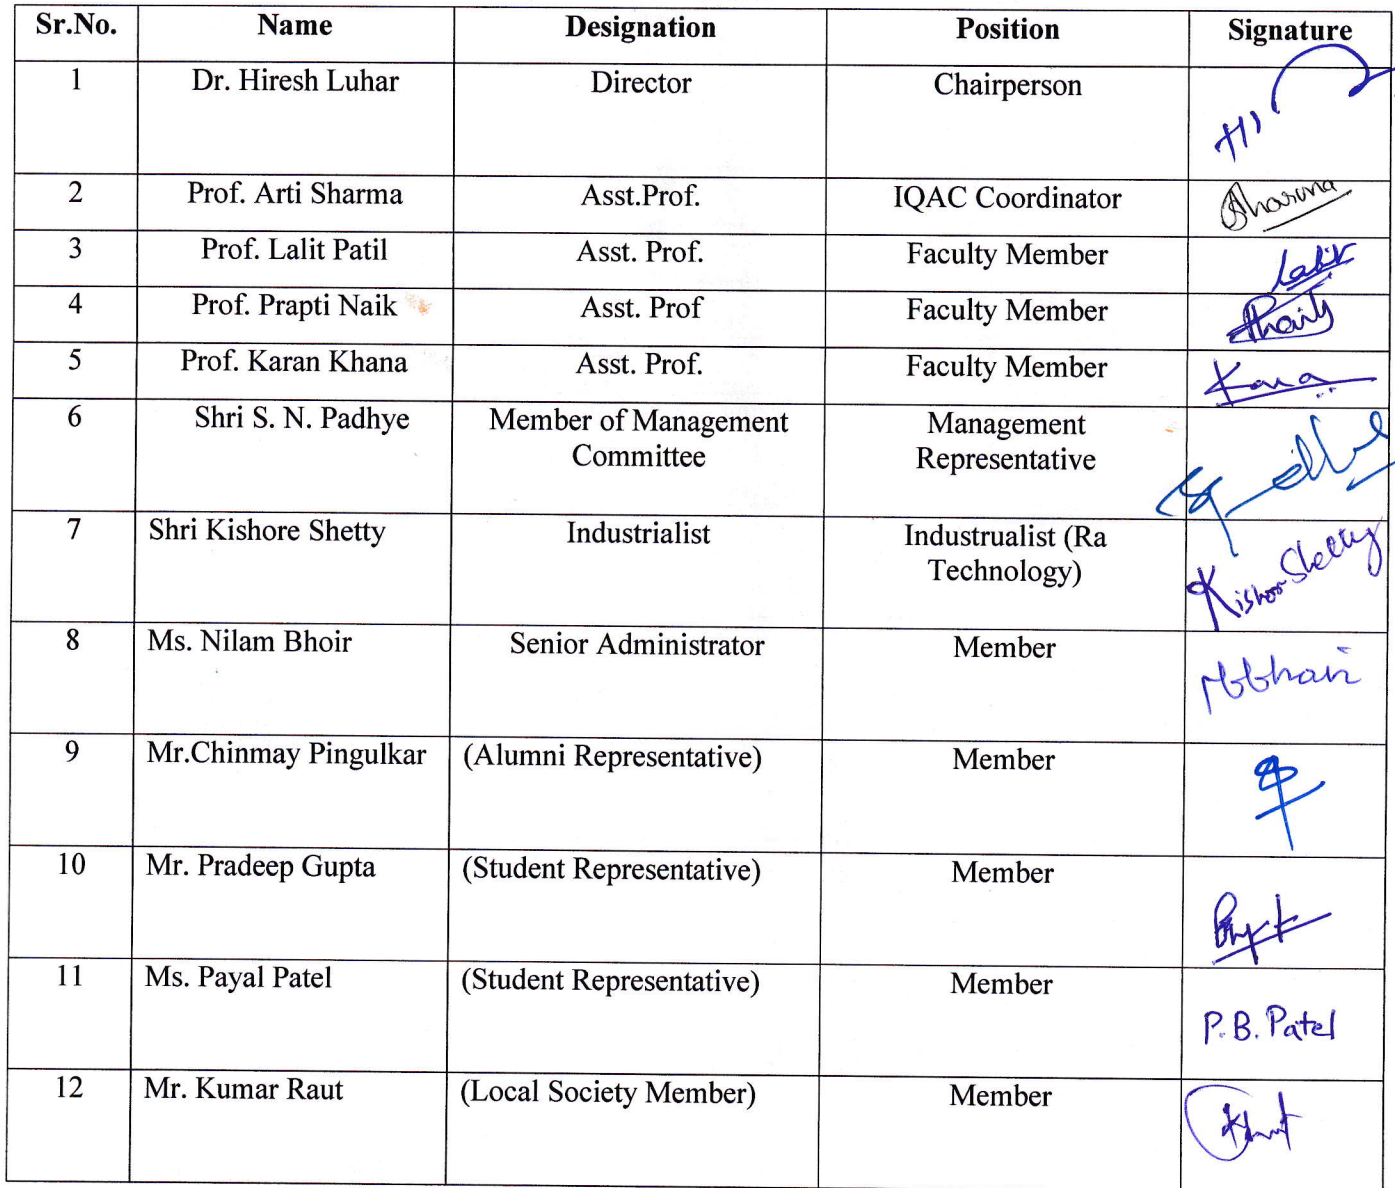 Sr.No. Name Designation Position Signature
1 Dr. Hiresh Luhar Director Chairperson
2 Prof. Arti Sharma Asst.Prof. IQAC Coordinator Sharma
3 Prof. Lalit Patil Asst. Prof. Faculty Member Lalit
4 Prof. Prapti Naik Asst. Prof Faculty Member
5 Prof. Karan Khana Asst. Prof. Faculty Member
6 Shri S. N. Padhye Member of Management Management
Committee Representative
7 Shri Kishore Shetty Industrialist Industrualist (Ra
Technology) Kishor Shetty
8 Ms. Nilam Bhoir Senior Administrator Member
9 Mr.Chinmay Pingulkar (Alumni Representative) Member
10 Mr. Pradeep Gupta (Student Representative) Member
11 Ms. Payal Patel (Student Representative) Member P.B. Patel
12 Mr. Kumar Raut (Local Society Member) Member